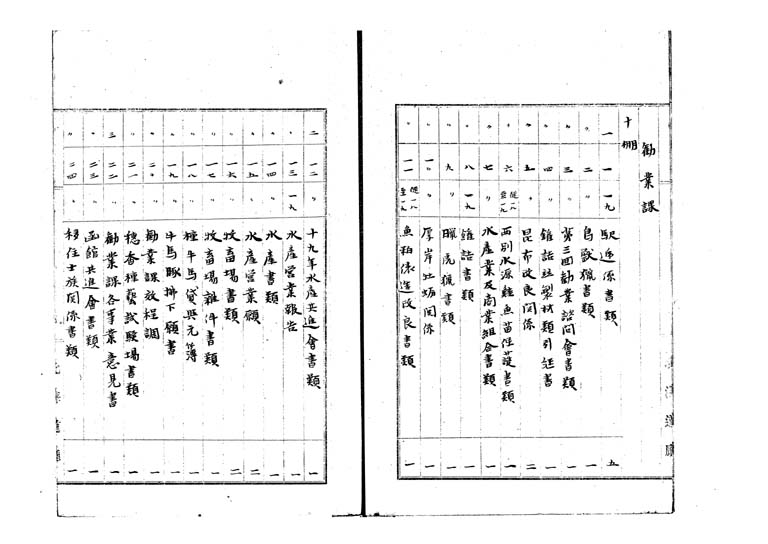 勧業課
十棚
一 一 一九 駅逓係書類 五
〃 二 〃 鳥獣猟書類 一
〃 三 〃 第三回勧業諮問會書類 一
〃 四 〃 鑵詰
〃 五 〃 昆布改良関係 二
〃 六 従一八至一九 西別水源鮭魚苗保護書類 一
〃 七 〃 水産業及商業組合書類 一
〃 八 一九 鑵詰書類 一
〃 九 〃 臘虎猟書類 一
〃 一〇 〃 厚岸牡蛎関係 一
〃 一一 従一八至一九 魚粕俵造改良書類 一
二 一二 〃 十九年水産共進會書類 一
〃 一三 一九 水産営業報告 一
〃 一四 〃 水産書類 一
〃 一五 〃 水産営業願 二
〃 一六 〃 牧畜場書類 二
〃 一七 〃 牧畜場雑件書類 一
〃 一八 〃 種牛馬貸與元簿 一
〃 一九 〃 牛馬豚拂下願書 一
〃 二〇 〃 勧業課放程調 一
〃 二一 〃 穂香種藝試験場書類 一
三 二二 〃 勧業課各事業意見書 一
〃 二三 〃 函館共進會書類 一
〃 二四 〃 移住士族関係書類 一